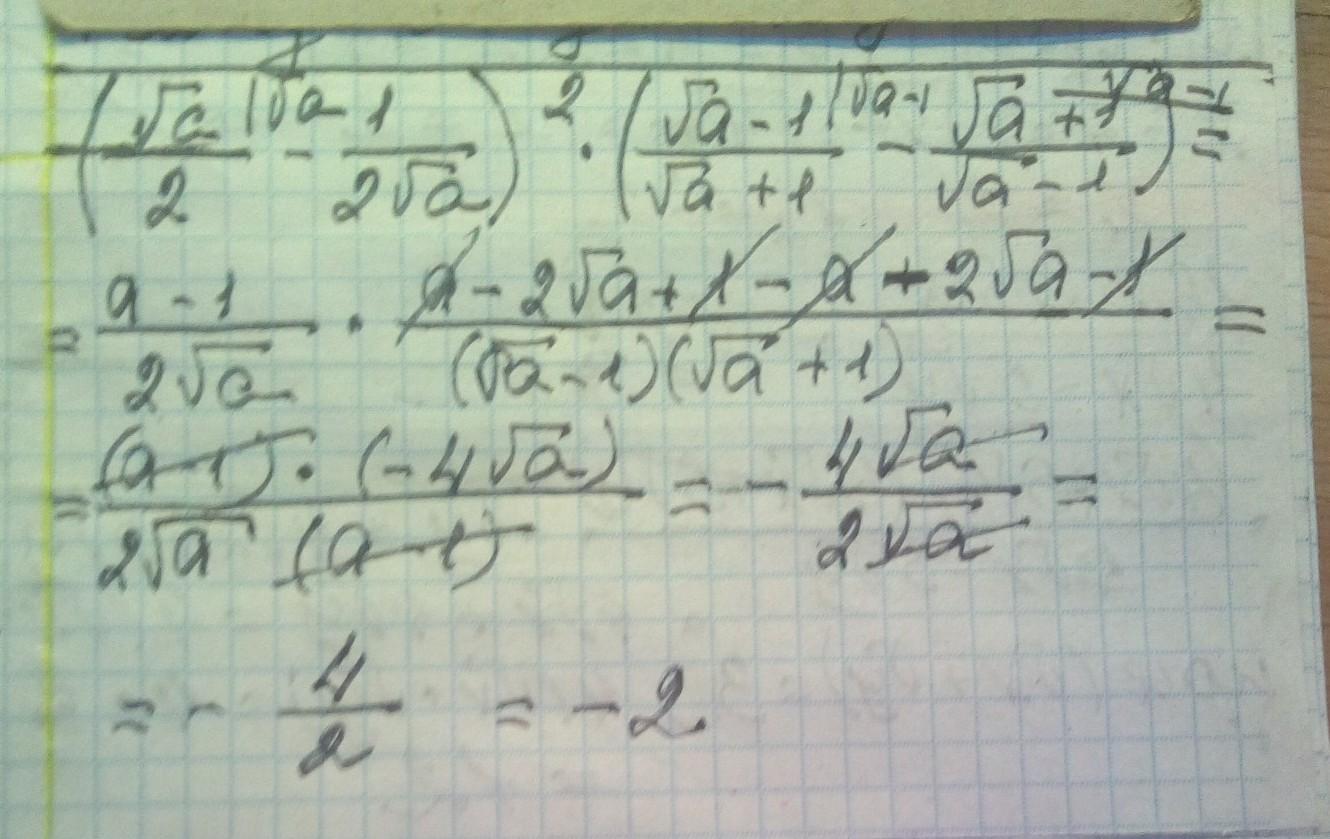 (√a/2 |√a - 1/2√a)² · (√a - 1/√a + 1 |√a-1 - √a + 1/√a - 1 √a-1) =
= a - 1/2√a · a - 2√a + 1 - a - 2√a - 1/(√a - 1)(√a + 1) =
= (a - 1) · (-4√a)/2√a (a - 1) = - 4√a/2√a =
= - 4/2 = -2